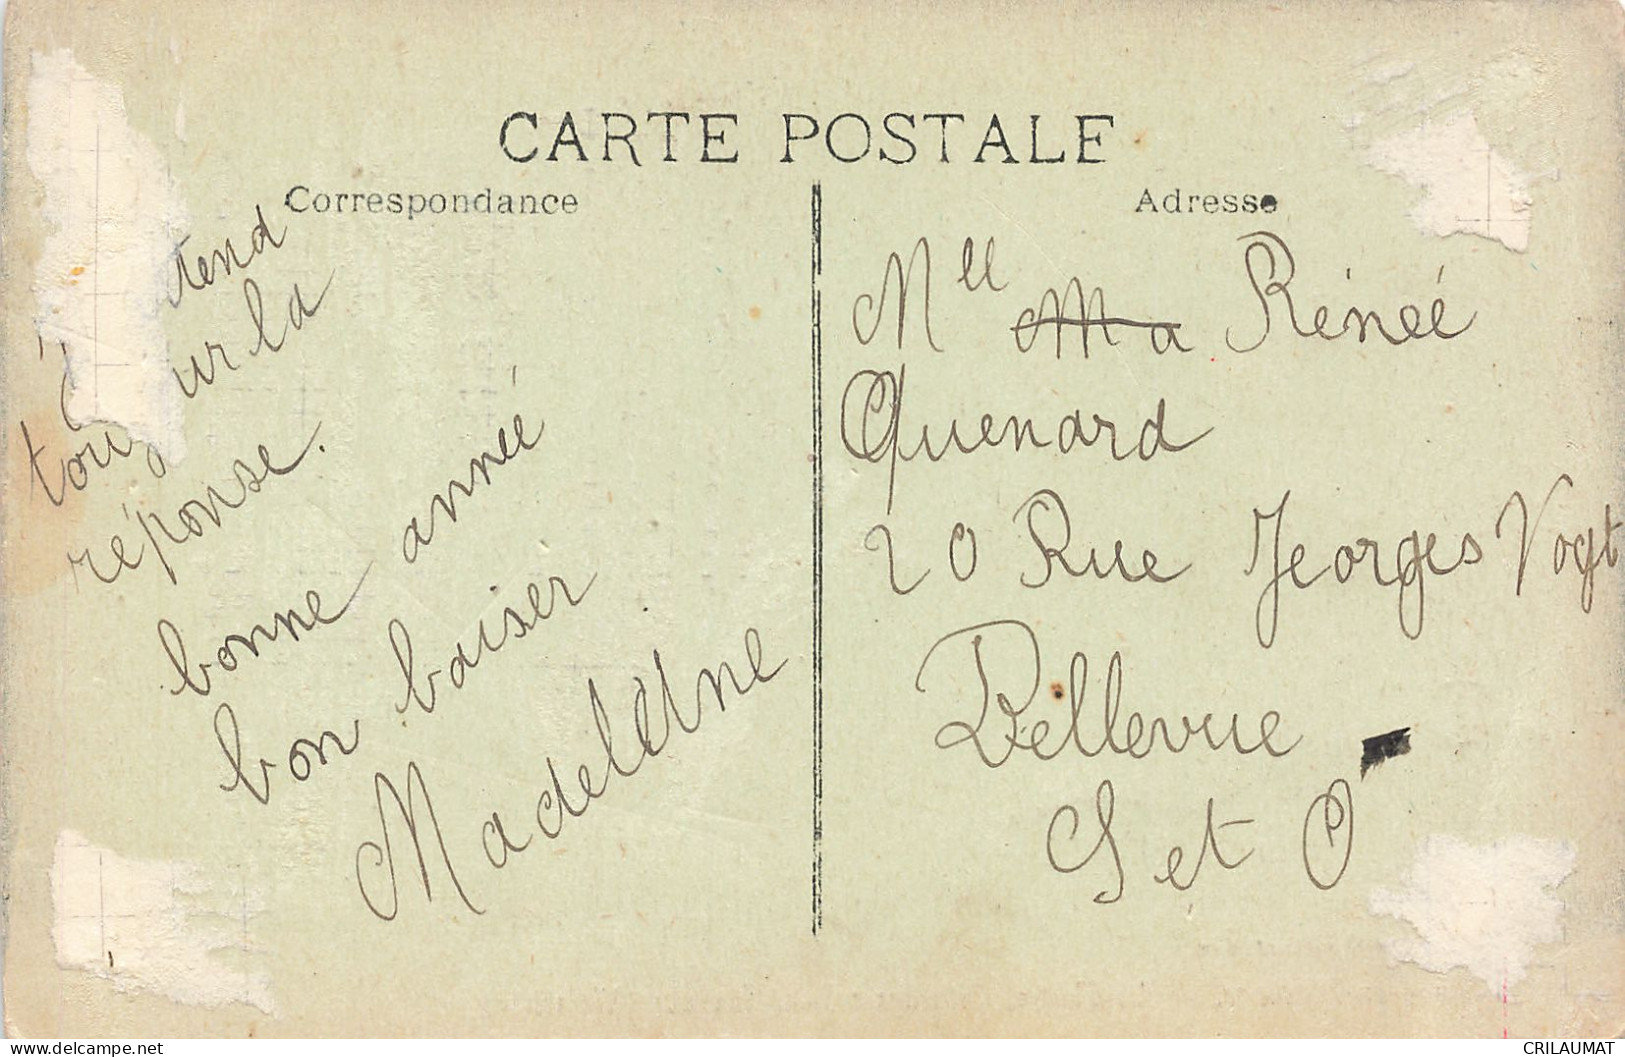 CARTE POSTALE
Correspondance
tend
ur la
réponse.
bonne année
bon baiser
Madeleine
Adresse
Mll Ma Rénéé
Quenard
20 Rue Georges Vogt
Bellevue
S et O
CRILAUMAT